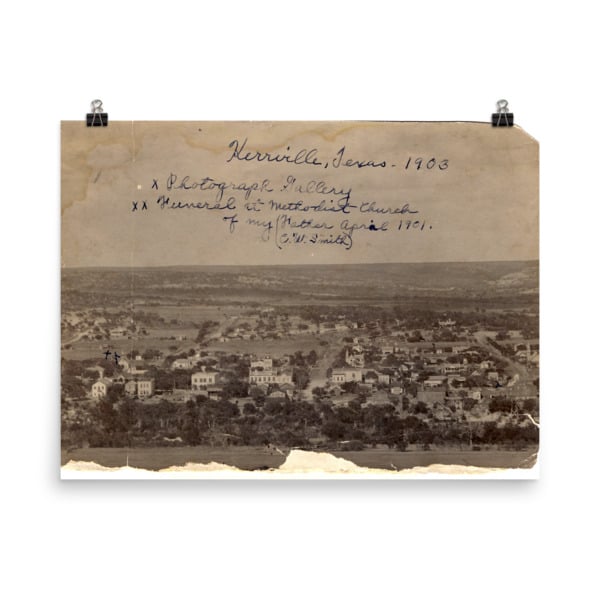 Kerrville, Texas - 1903
x Photograph Gallery
xx Funeral at Methodist Church
of my Father April 1901.
(S.W. Smith)
xx